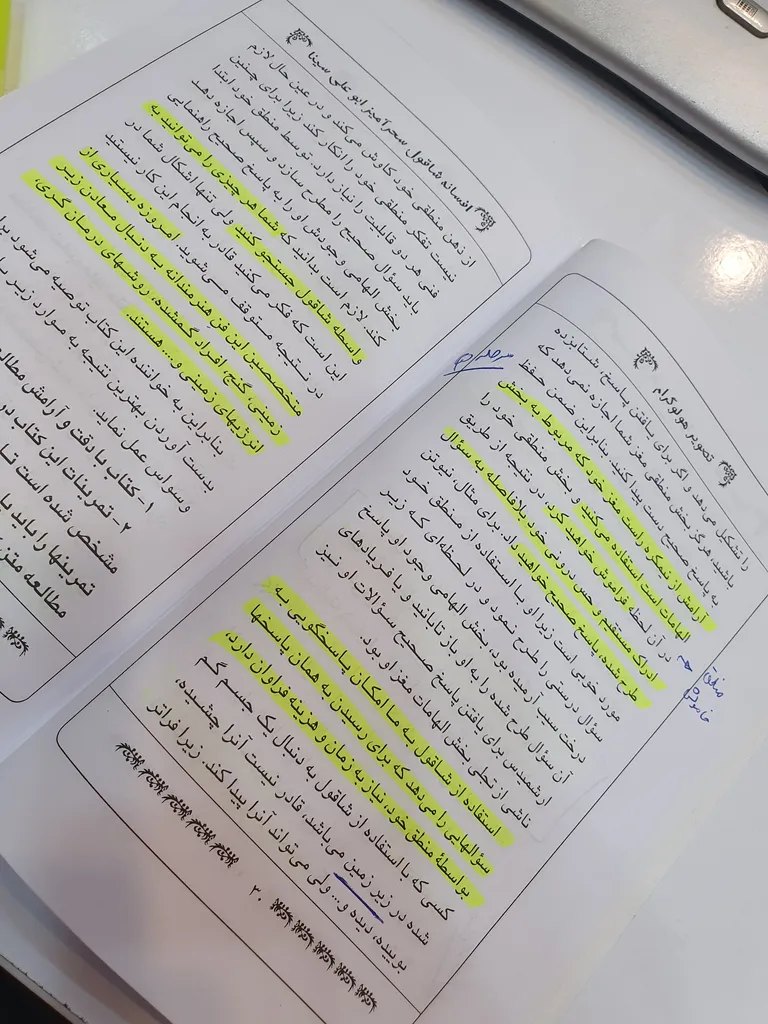 تصویر هولوگرام
را تشکیل می‌دهد و اگر برای یافتن پاسخ، شتابزده
باشید، هرگز بخش منطقی مغز شما اجازه نمی‌دهد که
به پاسخ صحیح دست پیدا کنید. بنابراین ضمن حفظ
آرامش از نیمکره راست مغز خود که مربوط به بخش
الهامات است استفاده می‌کند و بخش منطقی خود را
در آن لحظه فراموش خواهید کرد. در نتیجه از طریق
ادراک مستقیم و حس درونی خود بلافاصله به سؤال
طرح شده پاسخ صحیح خواهند داد. برای مثال، نیوتن
مورد خوبی است زیرا او با استفاده از منطق خود
سؤال درستی را طرح نمود و در لحظه‌ای که زیر
درخت سیب آرمیده بود، بخش الهامی وجود او پاسخ
آن سؤال طرح شده را به او باز تابانند و یا فریادهای
ارشمیدس برای یافتن پاسخ صحیح سؤالات او نیز
ناشی از تجلی بخش الهامات مغز او بود.
استفاده از شاقول به ما امکان پاسخگویی به
سؤالهایی را می‌دهد که برای رسیدن به همان پاسخها
بواسطهٔ منطق خود، نیاز به زمان و هزینه فراوان دارد،
کسی که با استفاده از شاقول به دنبال یک جسم گم
شده در زیر زمین می‌باشد، قادر نیست آنرا چشیده،
بوییده، دیده و... ولی می‌تواند آنرا پیدا کند. زیرا فراتر
۲۰
منطق
خاموش
افسانه شاقول سحرآمیز ابو علی سینا
از ذهن منطقی خود کاوش می‌کند و در عین حال لازم
نیست تفکر منطقی خود را انکار کند زیرا برای چنین
فنی هر دو قابلیت را نیاز دارد. توسط منطق خود ابتدا
باید سؤال صحیح را مطرح سازد و سپس اجازه دهد
بخش الهامی وجودش او را به پاسخ صحیح راهنمایی
کند. لازم است بدانید که شما هر چیزی را می‌توانید به
واسطه شاقول جستجو کنید ولی تنها اشکال شما در
این است که فکر می‌کنید قادر به انجام این کار نیستید
در نتیجه متوقف می‌شوید. امروزه بسیاری از
متخصصین این فن هنرمندانه به دنبال معادن زیر
زمینی، گنج، افراد گمشده، روشهای درمان گری،
انرژیهای زمینی و... هستند.
بنابراین به خواننده این کتاب توصیه می‌شود
بدست آوردن بهترین نتیجه به موارد زیر
وسواس عمل نماید.
۱- کتاب با دقت و آرامش
۲- تمرینات این کتاب در
مشخص شده است
تمرینها را باید
مطالعه